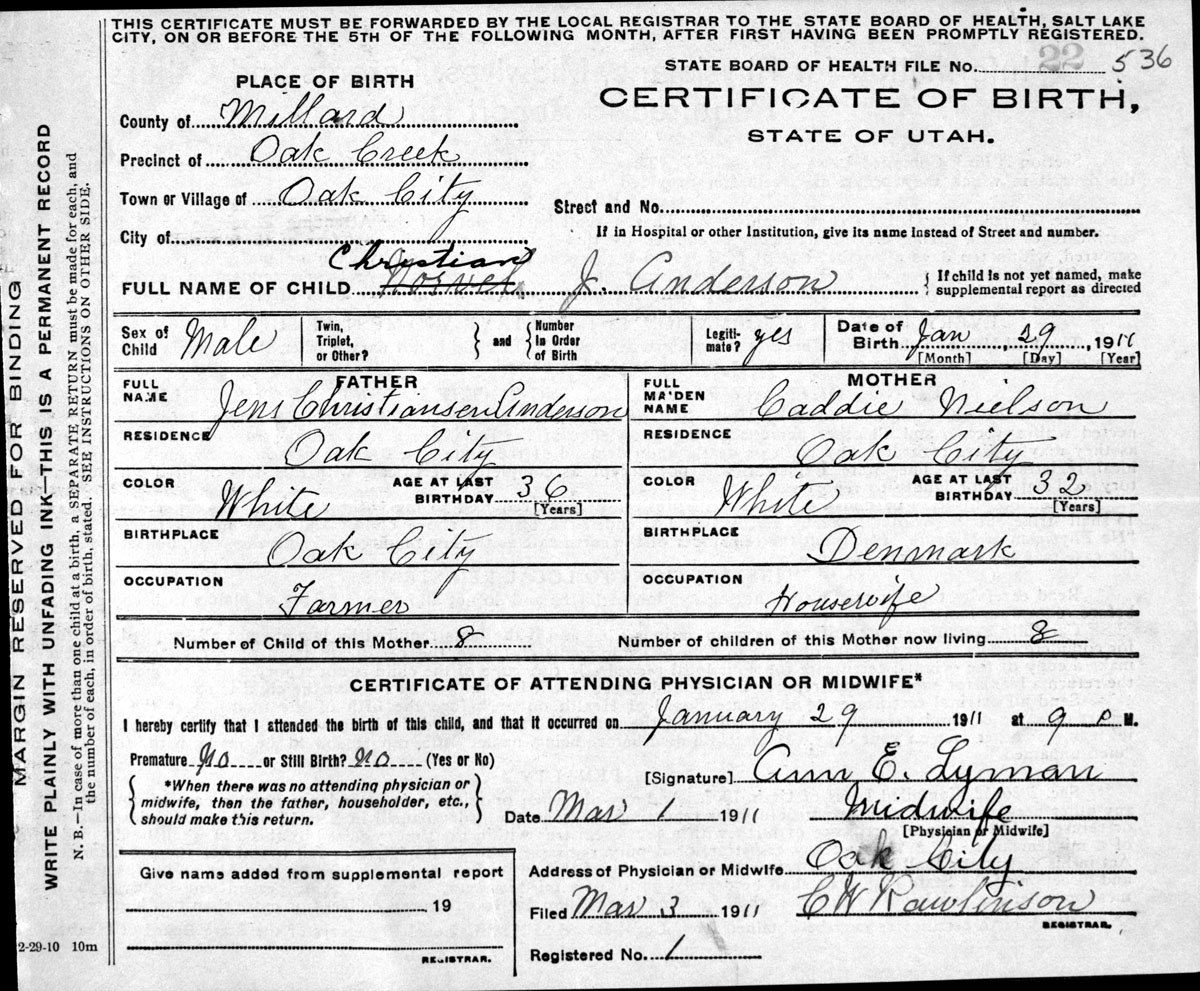 THIS CERTIFICATE MUST BE FORWARDED BY THE LOCAL REGISTRAR TO THE STATE BOARD OF HEALTH, SALT LAKE
CITY, ON OR BEFORE THE 5TH OF THE FOLLOWING MONTH, AFTER FIRST HAVING BEEN PROMPTLY REGISTERED.
MARGIN RESERVED FOR BINDING
WRITE PLAINLY WITH UNFADING INK—THIS IS A PERMANENT RECORD
N. B.—In case of more than one child at a birth, a SEPARATE RETURN must be made for each, and
the number of each, in order of birth, stated. SEE INSTRUCTIONS ON OTHER SIDE.
STATE BOARD OF HEALTH FILE No. 22 536
PLACE OF BIRTH
CERTIFICATE OF BIRTH,
STATE OF UTAH.
County of Millard
Precinct of Oak Creek
Town or Village of Oak City
Street and No.
City of
If in Hospital or other Institution, give its name instead of Street and number.
Christian
FULL NAME OF CHILD J. Anderson
{ If child is not yet named, make
supplemental report as directed
Sex of Child Male
Twin, Triplet, or Other?
} and {
Number In Order of Birth
Legiti- mate? yes
Date of Birth Jan 29, 1911
[Month] [Day] [Year]
FATHER
FULL NAME Jens Christiansen Anderson
RESIDENCE Oak City
COLOR White
AGE AT LAST BIRTHDAY 36 [Years]
BIRTHPLACE Oak City
OCCUPATION Farmer
MOTHER
FULL MAIDEN NAME Caddie Nielson
RESIDENCE Oak City
COLOR White
AGE AT LAST BIRTHDAY 32 [Years]
BIRTHPLACE Denmark
OCCUPATION Housewife
Number of Child of this Mother 8 Number of children of this Mother now living 8
CERTIFICATE OF ATTENDING PHYSICIAN OR MIDWIFE*
I hereby certify that I attended the birth of this child, and that it occurred on January 29 1911 at 9 P M.
Premature No or Still Birth? No (Yes or No)
{ *When there was no attending physician or
midwife, then the father, householder, etc.,
should make this return. }
[Signature] Ann E. Lyman
Date Mar 1 1911 Midwife
[Physician or Midwife]
Address of Physician or Midwife Oak City
Give name added from supplemental report
19
REGISTRAR.
Filed Mar 3 1911 C W Rawlinson
REGISTRAR.
Registered No. 1
2-29-10 10m